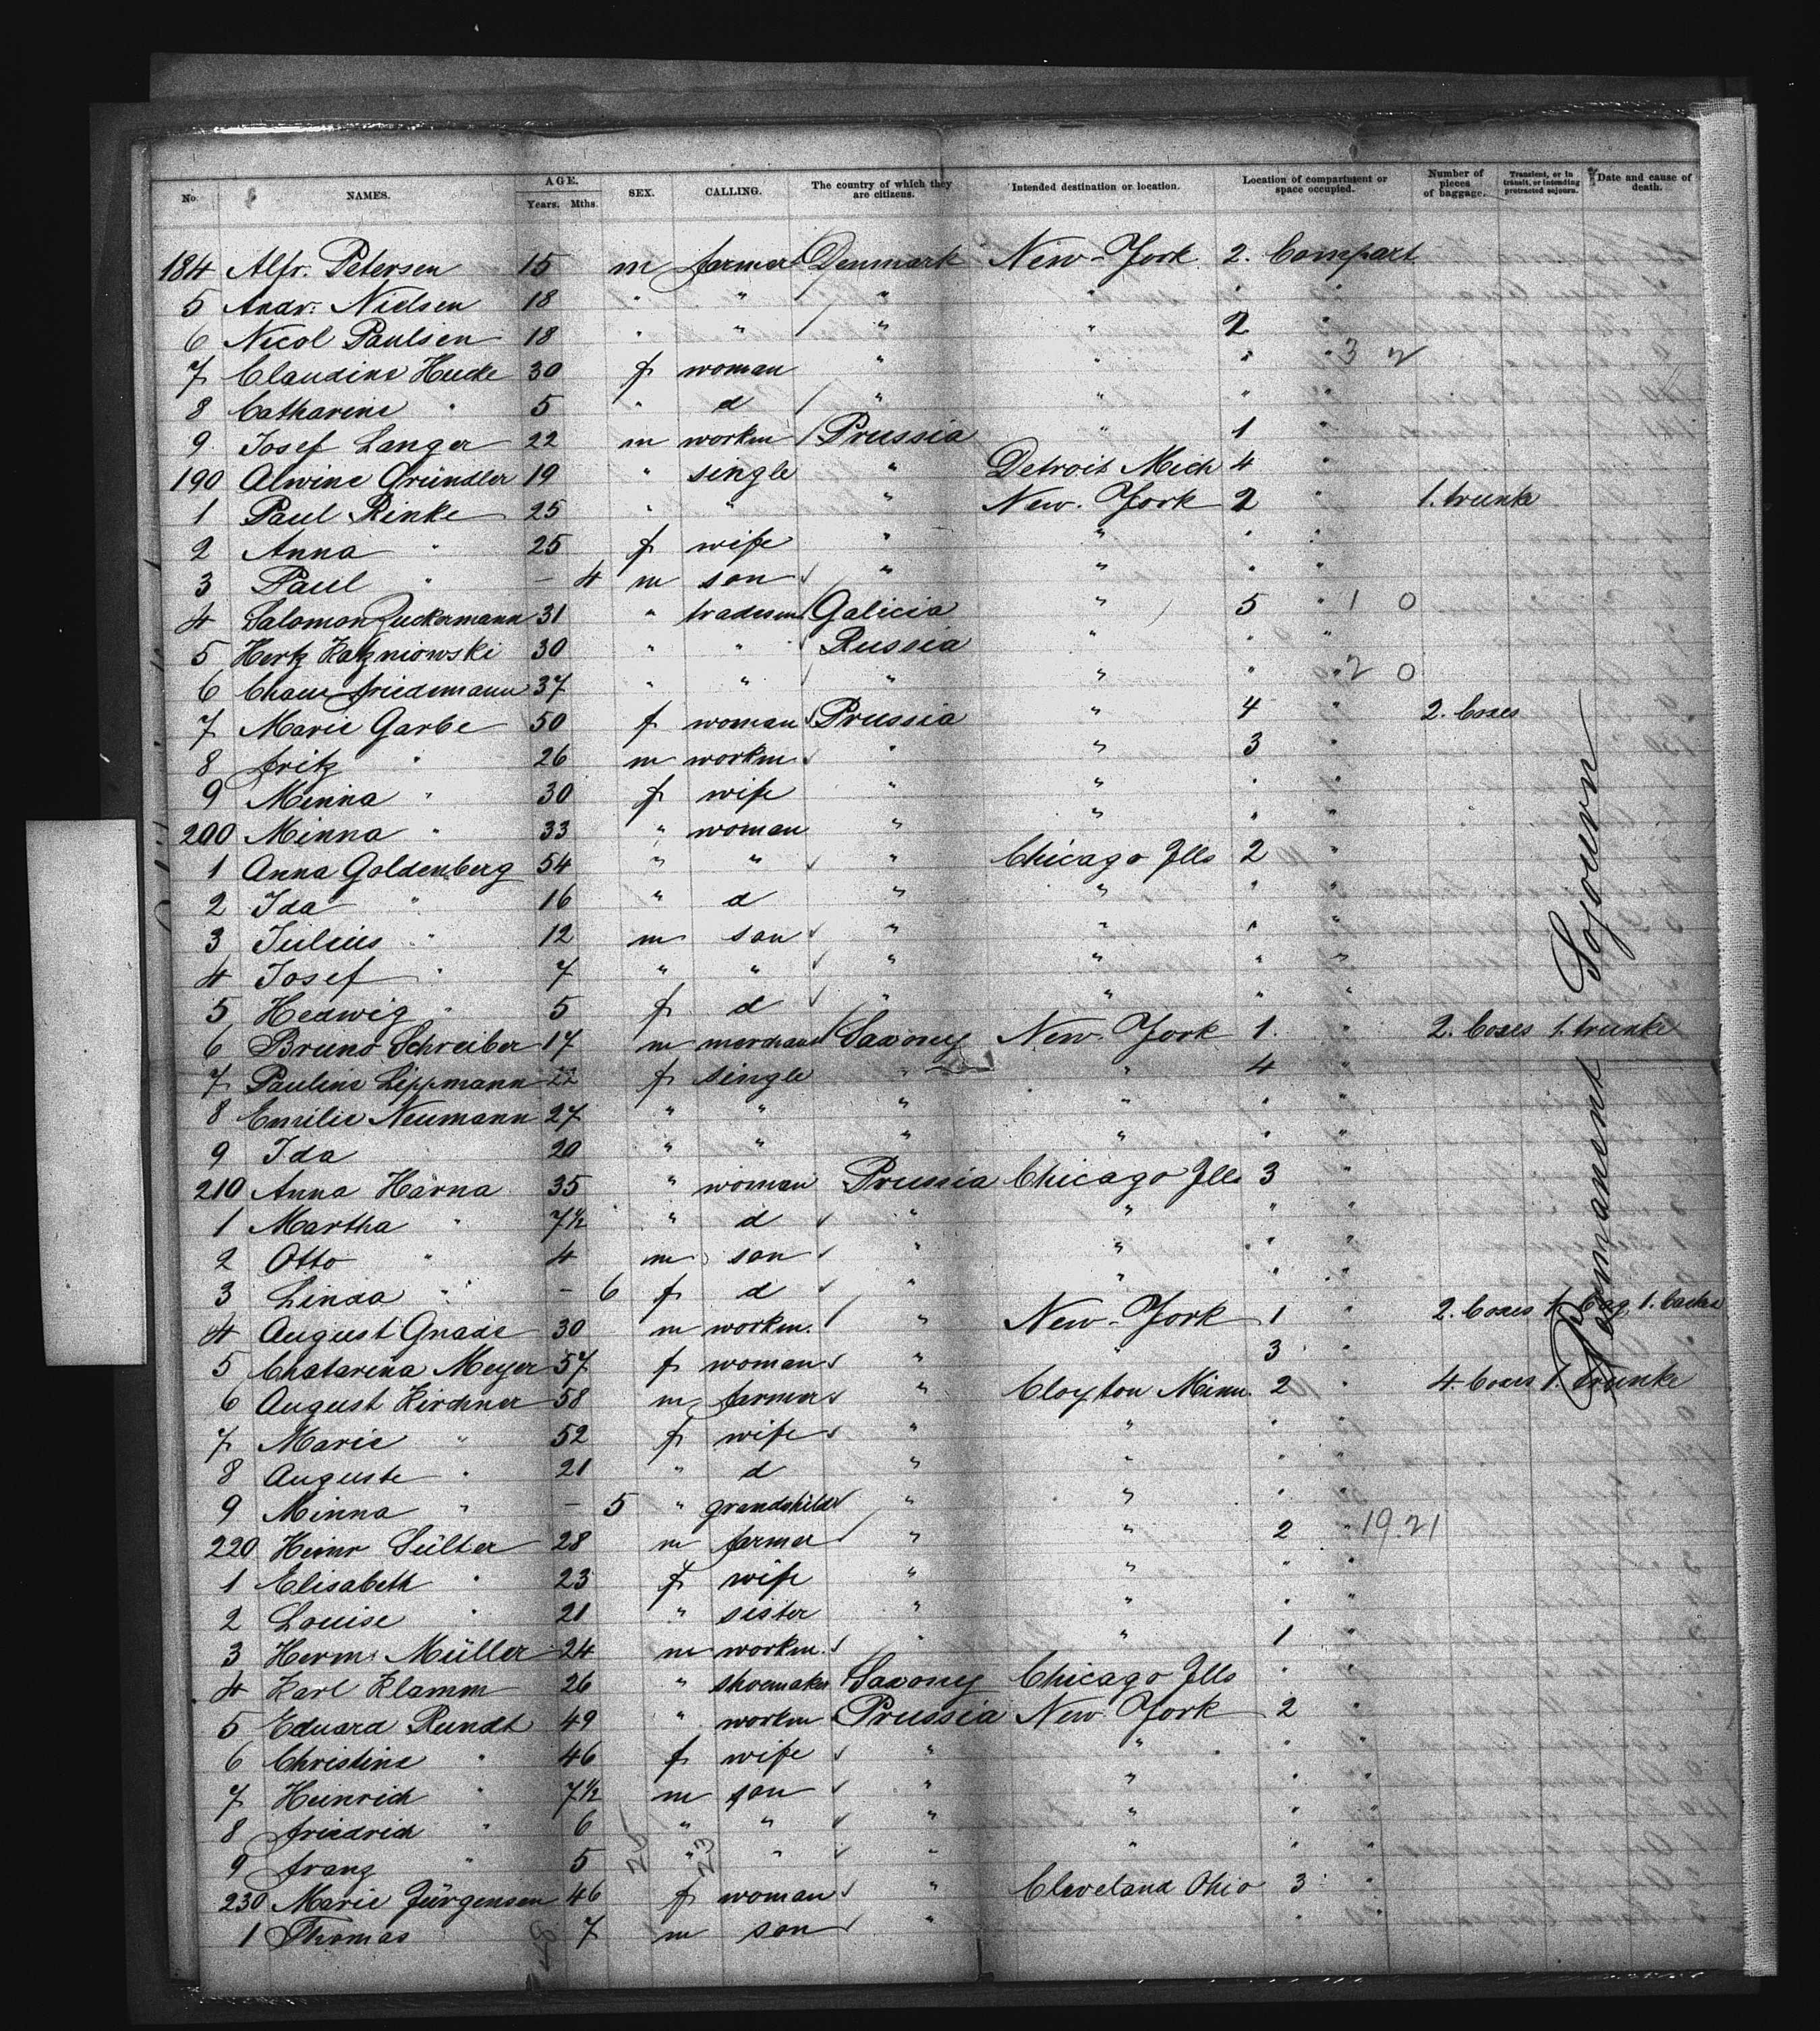 No. NAMES. AGE. Years. Mths. SEX. CALLING. The country of which they are citizens. Intended destination or location. Location of compartment or space occupied. Number of pieces of baggage. Transient, or in transit, or intending protracted sojourn. Date and cause of death.
184 Alfr. Petersen 15 m farmer Denmark New-York 2. Compart
5 Andr. Nielsen 18 " " " " " "
6 Nicol Paulsen 18 " " " " 2 "
7 Claudine Heide 30 f woman " " " " 3 2
8 Catharine " 5 " d " " " "
9. Josef Langer 22 m workm Prussia " 1 "
190 Alwine Gründler 19 " single " Detroit Mich 4 "
1 Paul Rinke 25 " " " New-York 2 " 1. trunk
2 Anna " 25 f wife " " " "
3 Paul " – 4 m son " " " "
4 Salomon Zuckermann 31 " tradesm Galicia " 5 " 1 0
5 Hertz Katzniowski 30 " " Russia " " "
6 Chaim Friedemann 37 " " " " " " 2 0
7 Marie Garbe 50 f woman Prussia " 4 " 2. boxes
8 Fritz " 26 m workm " " 3 "
9 Minna " 30 f wife " " " "
200 Minna " 33 " woman " " " "
1 Anna Goldenberg 54 " " " Chicago Ills 2 "
2 Ida " 16 " d " " " "
3 Julius " 12 m son " " " "
4 Josef " 7 " " " " " "
5 Hedwig " 5 f d " " " "
6 Bruno Schreiber 17 m merchant Saxony New-York 1. " 2. boxes 1. trunk
7 Pauline Lippmann 22 f single " " 4 "
8 Emilie Neumann 27 " " " " " "
9 Ida 20 " " " " " "
210 Anna Harna 35 " woman Prussia Chicago Ills 3 "
1 Martha " 7½ " d " " " "
2 Otto " 4 m son " " " "
3 Linda " – 6 f d " " " "
4 August Gnade 30 m workm. " New-York 1 " 2. boxes 1. bag, 1.
5 Chatarina Meyer 57 f woman " " 3 "
6 August Kirchner 58 m farmer " Cloyton Minn. 2 " 4. boxes 1. trunk
7 Marie " 52 f wife " " " "
8 Auguste " 21 " d " " " "
9 Minna " – 5 " grandchild " " " "
220 Heinr Sülter 28 m farmer " " 2 " 19.21
1 Elisabeth " 23 f wife " " " "
2 Louise " 21 " sister " " " "
3 Herm. Müller 24 m workm. " " 1 "
4 Karl Klamm 26 " shoemaker Saxony Chicago Ills " "
5 Eduard Rundt 49 " workm Prussia New-York 2 "
6 Christine " 46 f wife " " " "
7 Heinrich " 7½ m son " " " "
8 Friedrich " 6 " " " " " "
9 Franz " 5 " " " " " "
230 Marie Jürgensen 46 f woman " Cleveland Ohio 3 "
1 Thomas 7 m son " " "
Permanent Sojourn